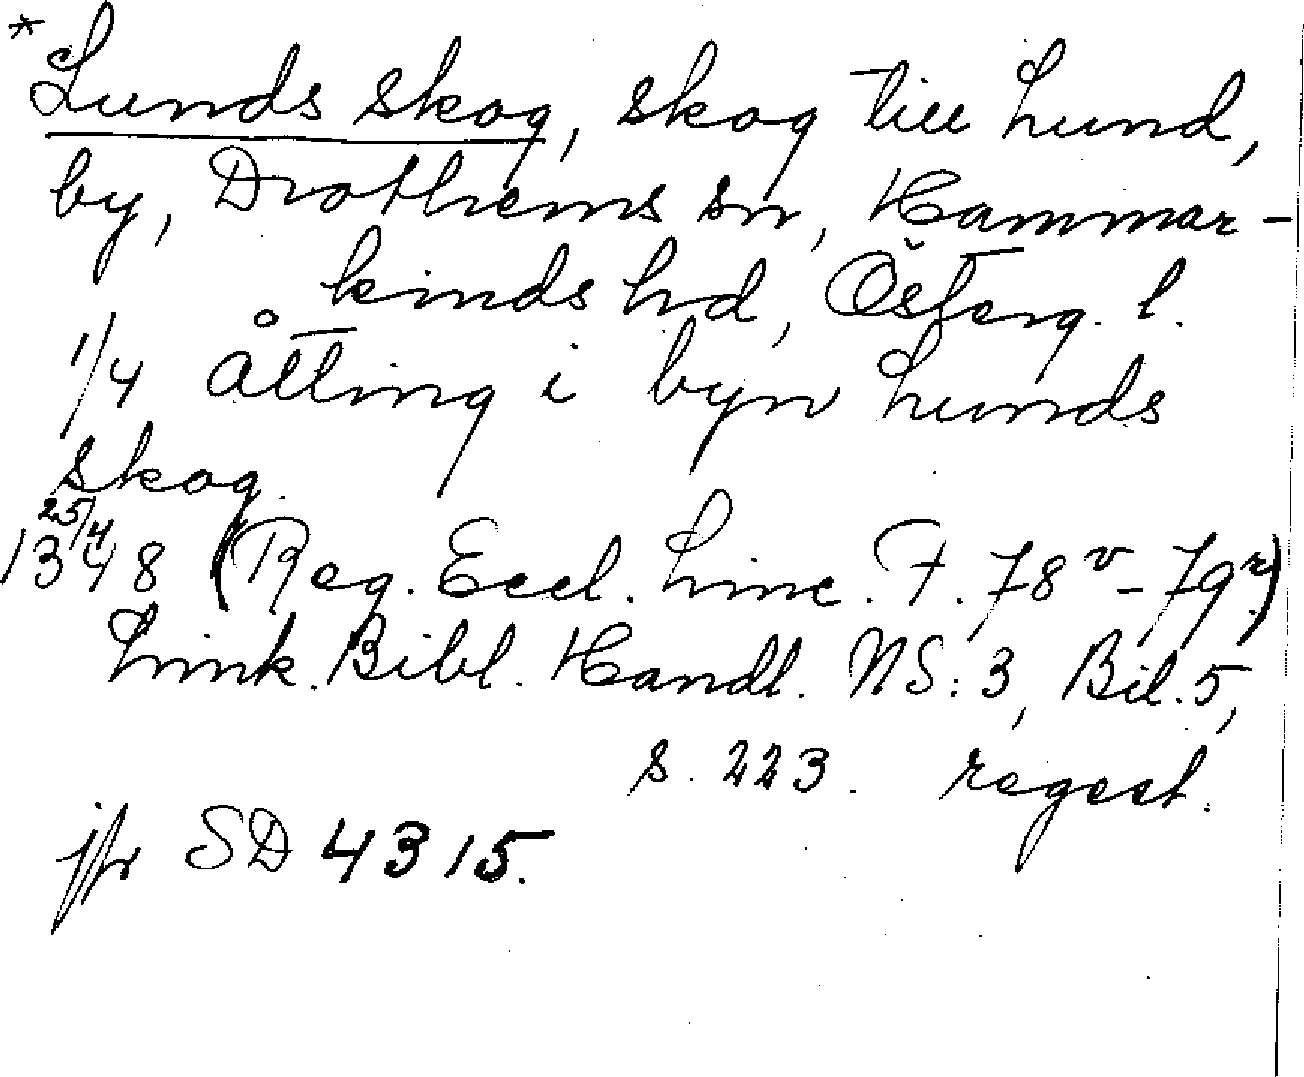 * Lunds skog, skog till Lund,
by, Drothems sn, Hammar-
kinds hd, Österg. l.
1/4 åtting i byn Lunds
skog.
25/4
1348 (Reg. Eccl. Linc. F. 78v - 79r)
Link. Bibl. Handl. NS: 3, Bil. 5,
s. 223. regest.
jfr SD 4315.